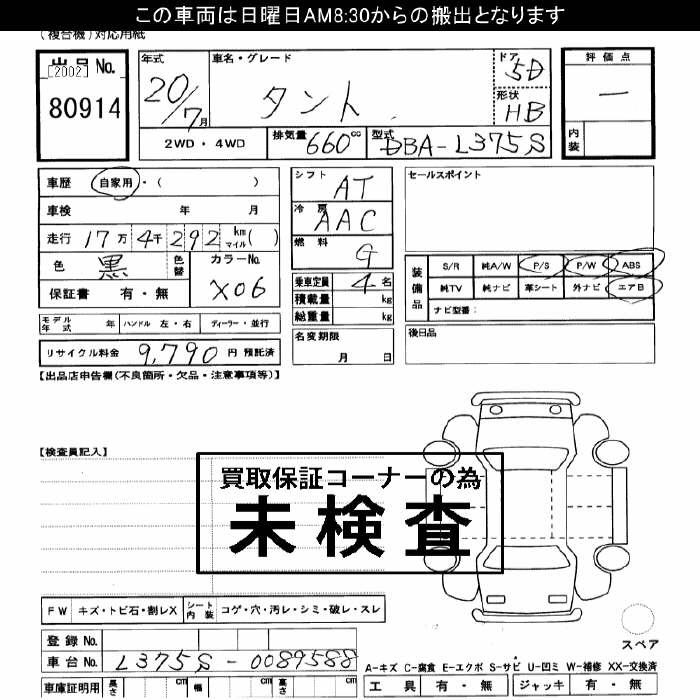 この車両は日曜日AM8:30からの搬出となります
(複合機)対応用紙
出品No.
[2002]
80914
年式
20/7月
車名・グレード
タント
ドア
5D
形状
HB
評価点
一
内装
2WD・4WD
排気量
660cc
型式
DBA-L375S
車歴 自家用・( )
車検 年 月
走行 17万4千292km マイル( )
色 黒 色替 カラーNo.
保証書 有・無 X06
シフト AT
冷房 AAC
燃料 G
乗車定員 4名
積載量 kg
総重量 kg
セールスポイント
装備品
S/R 純A/W P/S P/W ABS
純TV 純ナビ 革シート 外ナビ エアB
ナビ型番:
モデル年式 年 ハンドル 左・右 ディーラー・並行
名変期限
月 日
後日品
リサイクル料金 9,790円 預託済
【出品店申告欄(不良箇所・欠品・注意事項等)】
【検査員記入】
買取保証コーナーの為
未検査
FW キズ・トビ石・割レX シート内装 コゲ・穴・汚レ・シミ・破レ・スレ
登録No.
車台No. L375S-0089588
車庫証明用 長さ cm 幅 cm 高さ cm
スペア
A-キズ C-腐食 E-エクボ S-サビ U-凹ミ W-補修 XX-交換済
工具 有・無 ジャッキ 有・無